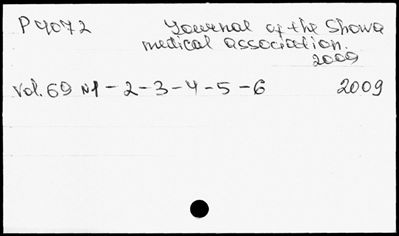 P 9072 Journal of the Showa
medical association.
2009
Vol. 69 N1 - 2 - 3 - 4 - 5 - 6 2009